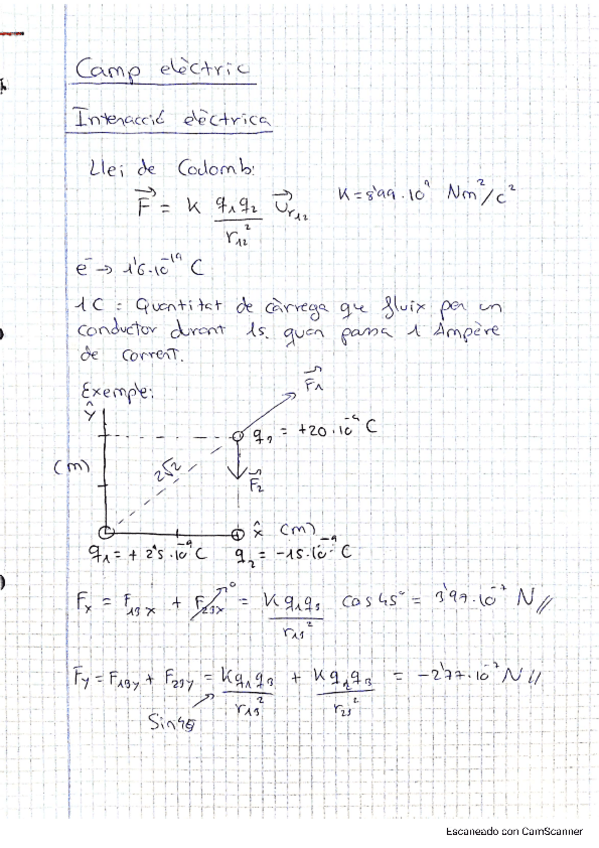 Camp elèctric
Interacció elèctrica
Llei de Coulomb:
F = K q1q2/r12² Ur12 K = 8'99·10⁹ Nm²/C²
e⁻ → 1'6·10⁻¹⁹ C
1 C = Quantitat de càrrega que fluix per un
conductor durant 1s. quan passa 1 Ampère
de corrent.
Exemple:
F1
ŷ
q3 = +20·10⁻⁹ C
(m)
2√2
F2
x̂ (m)
q1 = +25·10⁻⁹ C q2 = -15·10⁻⁹ C
Fx = F13x + F23x⁰ = K q1q3/r13² cos45° = 3'97·10⁻⁷ N//
Fy = F13y + F23y = Kq1q3/r13² + Kq2q3/r23² = -2'77·10⁻⁷ N//
Sin45
Escaneado con CamScanner